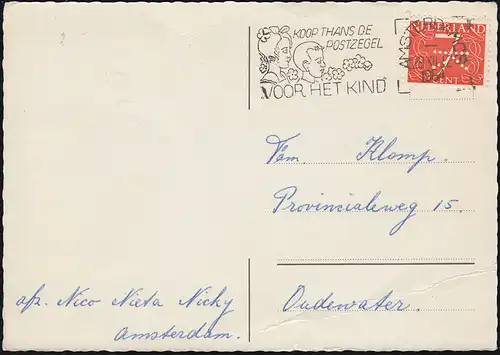 KOOP THANS DE
POSTZEGEL
VOOR HET KIND
AMSTERD
NEDERLAND
CENT
Fam. Klomp.
Provincialeweg 15.
Oudewater.
afz. Nico Nieta Nicky
Amsterdam.